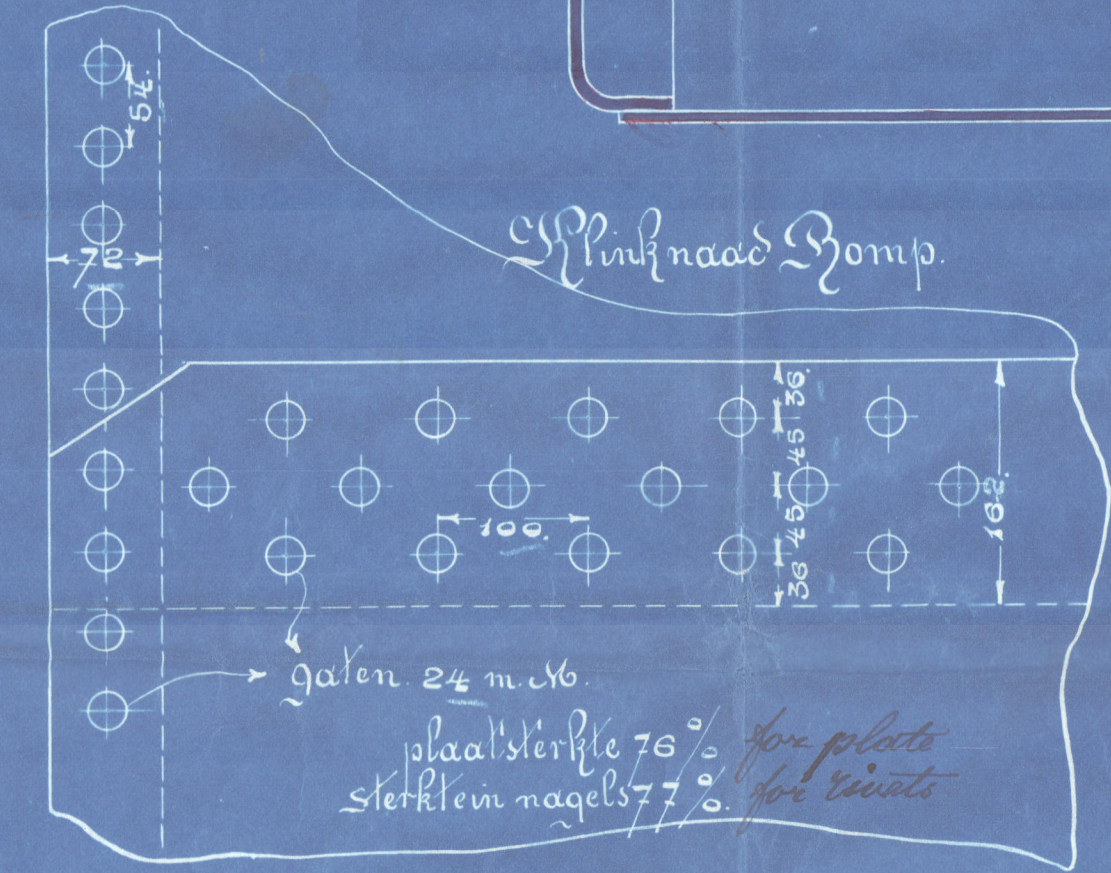 54.
72
Klinknaad Romp.
36.
45
45
36
162.
100.
gaten. 24 m.M.
plaatsterkte 76 % for plate
sterkte in nagels 77 %. for rivets